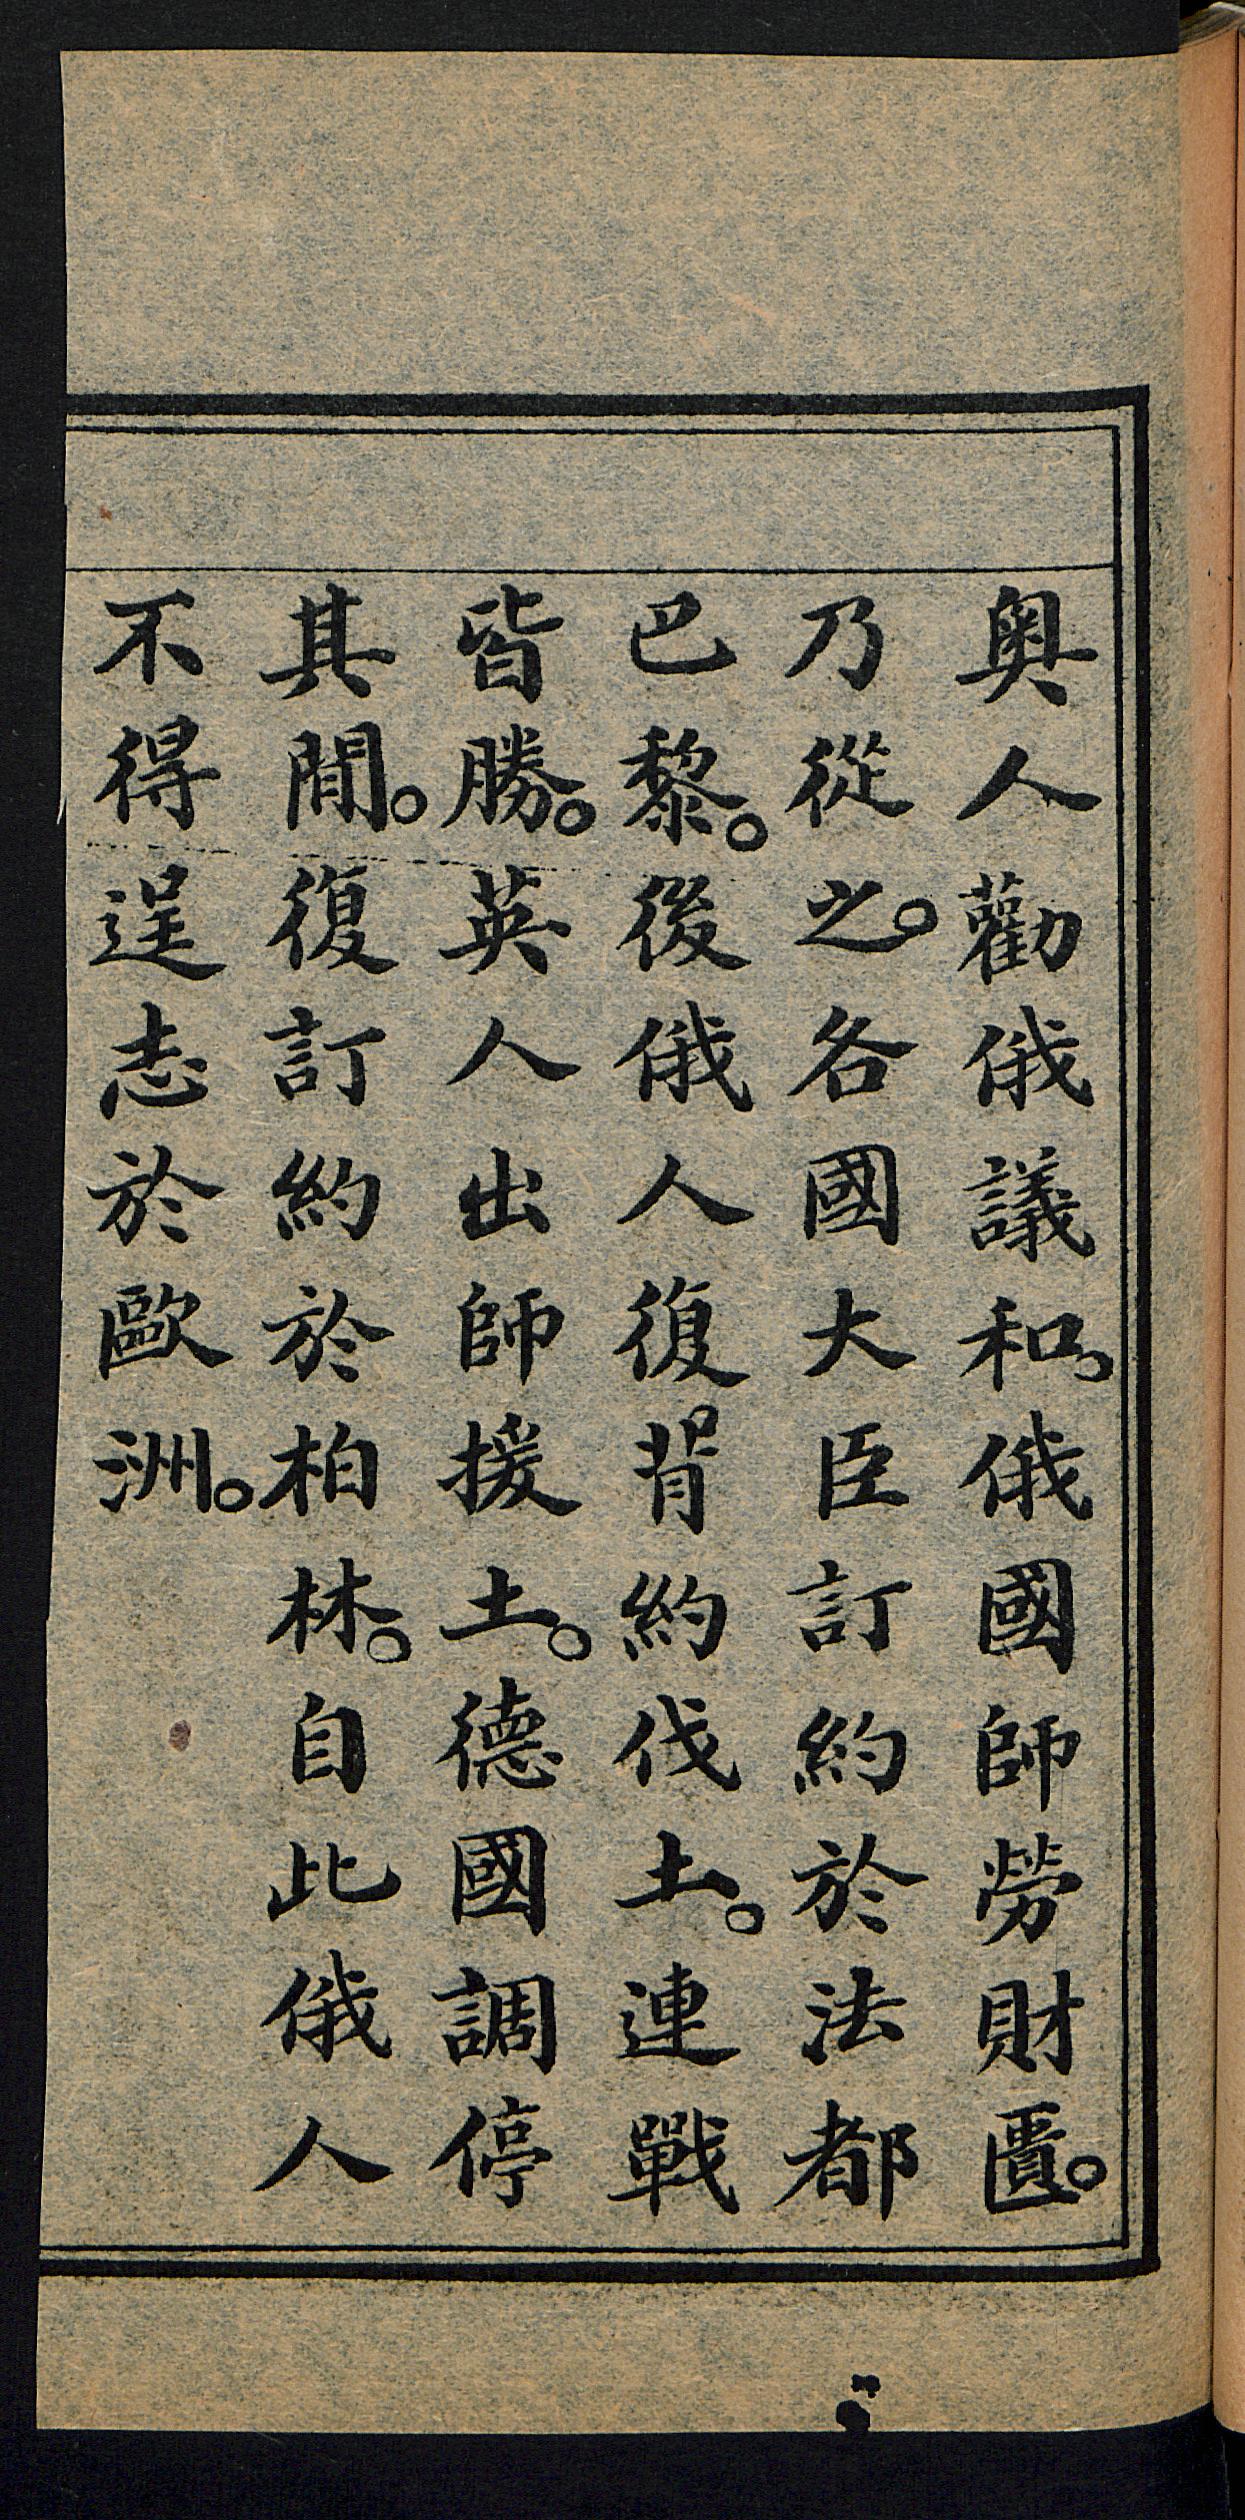 奧人勸俄議和、俄國師勞財匱。
乃從之。各國大臣訂約於法都
巴黎。後俄人復背約伐土。連戰
皆勝。英人出師援土。德國調停
其間。復訂約於柏林。自此俄人
不得逞志於歐洲。